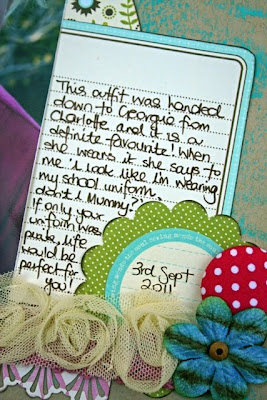 This outfit was handed
down to Georgia from
Charlotte and it is a
definite favourite! When
she wears it she says to
me 'i look like i'm wearing
my school uniform,
didn't i Mummy?'.
If only your
uniform was
pink, life
would be
perfect for
you!
3rd Sept
2011